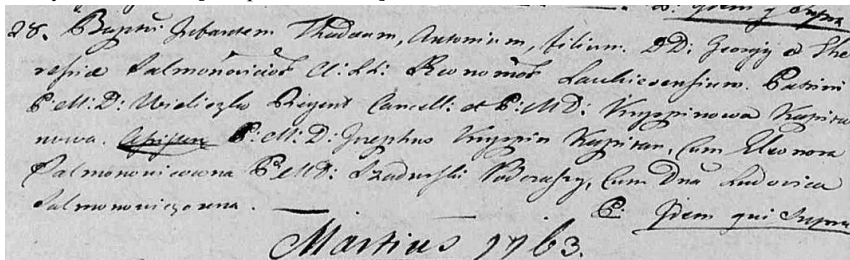 D: Idem q Supra
28. Bapt: Infantem Thadaeum, Antonium, filium. DD: Georgy et The
resiae Salmonoviciorum Patrini
P: M: D: Wieliczko Regent Cancell: et P: M: D: Kryspinowa Kapita
nowa. P: M: D: Josephus Kryspin Kapitan, Cum Eleonora
Salmonowiczowna P: M: D: Szadurski Podczaszy, Cum Dna Ludovica
Salmonowiczowna. P: Idem qui Supra
Martius 1763.